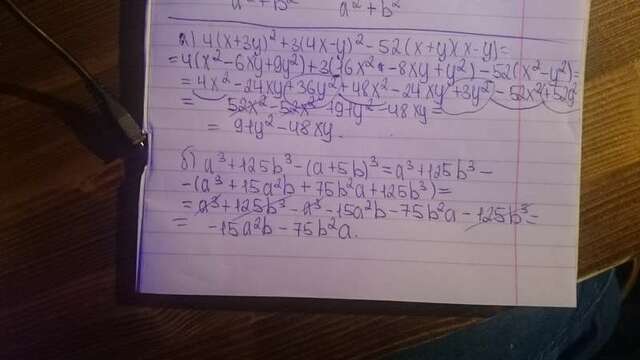 a²+b²
а) 4(x-3y)²+3(4x-y)²-52(x+y)(x-y)=
=4(x²-6xy+9y²)+3(16x²-8xy+y²)-52(x²-y²)=
=4x²-24xy+36y²+48x²-24xy+3y²-52x²+52y²
= 52x²-52x²+91y²-48xy=
= 91y²-48xy.
б) a³+125b³-(a+5b)³=a³+125b³-
-(a³+15a²b+75b²a+125b³)=
=a³+125b³-a³-15a²b-75b²a-125b³=
= -15a²b-75b²a.